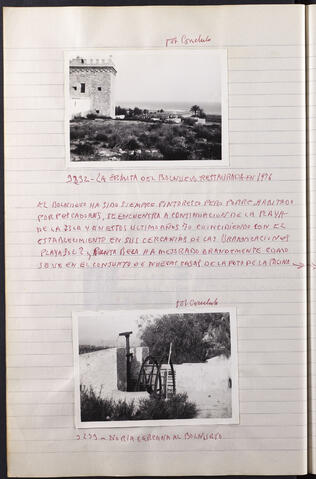 Fot Conchilo
3232 - LA ERMITA DEL BOLNUEVO RESTAURADA EN 1976
EL BOLNUEVO HA SIDO SIEMPRE PINTORESCO PERO POBRE, HABITADO
POR PESCADORES, SE ENCUENTRA A CONTINUACION DE LA PLAYA
DE LA ISLA Y EN ESTOS ULTIMOS AÑOS 70 COINCIDIENDO CON EL
ESTABLECIMIENTO EN SUS CERCANIAS DE LAS URBANIZACIONES
PLAYASOL 2 y PLAYA BELLA HA MEJORADO GRANDEMENTE COMO
SE VE EN EL CONJUNTO DE NUEVAS CASAS DE LA FOTO DE LA PAGINA
fot Conchilo
3233 - NORIA CERCANA AL BOLNUEVO